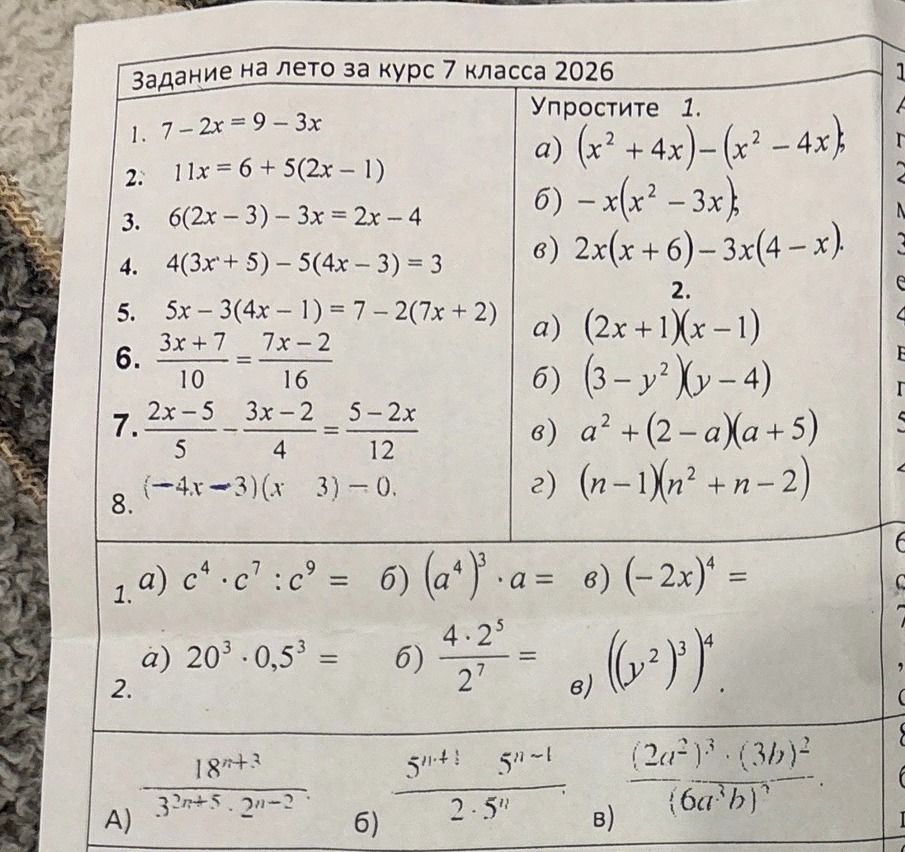 Задание на лето за курс 7 класса 2026
1. 7 – 2x = 9 – 3x
2. 11x = 6 + 5(2x – 1)
3. 6(2x – 3) – 3x = 2x – 4
4. 4(3x + 5) – 5(4x – 3) = 3
5. 5x – 3(4x – 1) = 7 – 2(7x + 2)
6. (3x + 7)/10 = (7x – 2)/16
7. (2x – 5)/5 – (3x – 2)/4 = (5 – 2x)/12
8. (–4x – 3)(x 3) – 0.
Упростите 1.
а) (x² + 4x) – (x² – 4x);
б) – x(x² – 3x);
в) 2x(x + 6) – 3x(4 – x).
2.
а) (2x + 1)(x – 1)
б) (3 – y²)(y – 4)
в) a² + (2 – a)(a + 5)
г) (n – 1)(n² + n – 2)
1. а) c⁴ · c⁷ : c⁹ = б) (a⁴)³ · a = в) (– 2x)⁴ =
2. а) 20³ · 0,5³ = б) (4 · 2⁵)/2⁷ = в) ((y²)³)⁴.
А) 18ⁿ⁺³/(3²ⁿ⁺⁵ · 2ⁿ⁻²). б) (5ⁿ⁺¹ 5ⁿ⁻¹)/(2 · 5ⁿ). в) ((2a²)³ · (3b)²)/(6a³b).